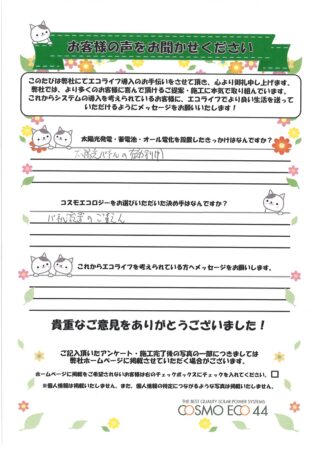 お客様の声をお聞かせください
このたびは弊社にてエコライフ導入のお手伝いをさせて頂き、心より御礼申し上げます。
弊社では、より多くのお客様に喜んで頂けるご提案・施工に本気で取り組んでいます。
これからシステムの導入を考えられているお客様に、エコライフでより良い生活を送って
いただけるようにメッセージをお願いいたします！
太陽光発電・蓄電池・オール電化を設置したきっかけはなんですか？
コスモエコロジーをお選びいただいた決め手はなんですか？
これからエコライフを考えられている方へメッセージをお願いします。
貴重なご意見をありがとうございました！
ご記入頂いたアンケート・施工完了後の写真の一部につきましては
弊社ホームページに掲載させていただく場合がございます。
ホームページに掲載をご希望されないお客様は右のチェックボックスにチェックを入れてください。
※個人情報は掲載いたしません。また、個人情報の特定につながるような写真は掲載いたしません。
THE BEST QUALITY SOLAR POWER SYSTEMS
COSMO ECO 44